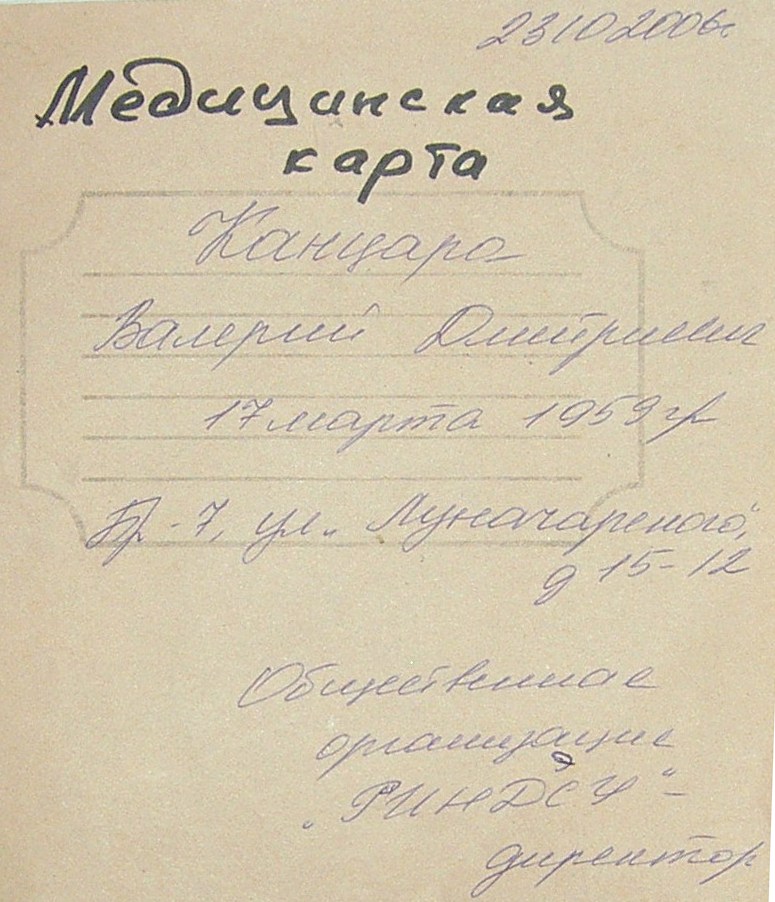 23 10 2006г
Медицинская
карта
Канцара
Валерий Дмитриевич
17 марта 1959 гр
-7, ул. "Луначарского",
д 15-12
Общественная
организация
директор